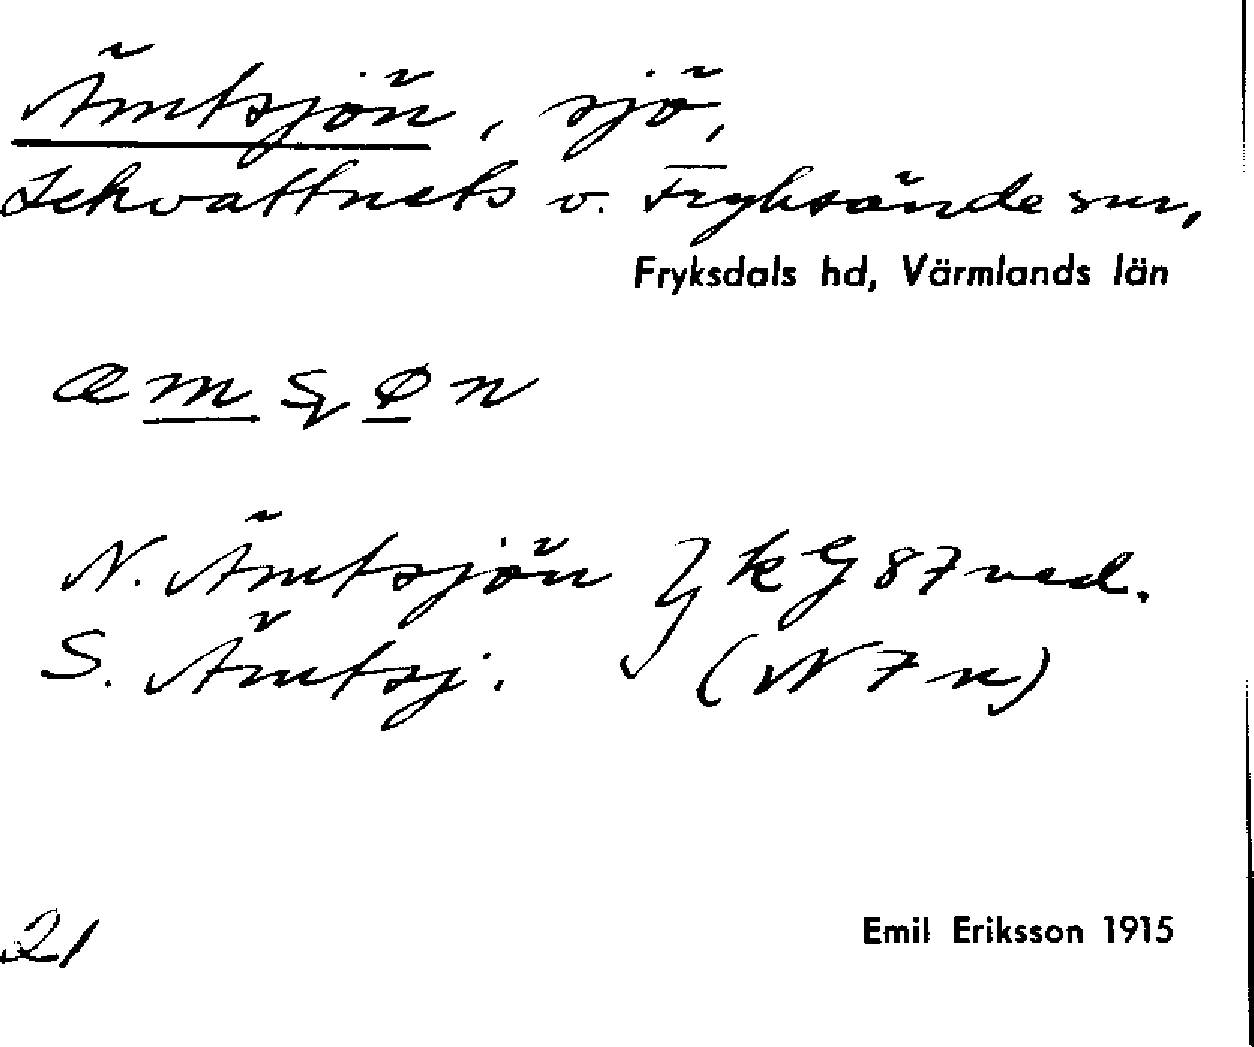 Ämtsjön, sjö,
Lekvattnets o. Fryksände snr,
Fryksdals hd, Värmlands län
æmʂøn
N. Ämtsjön } kG 87 ved.
S. Ämtsj. (N7n)
21
Emil Eriksson 1915